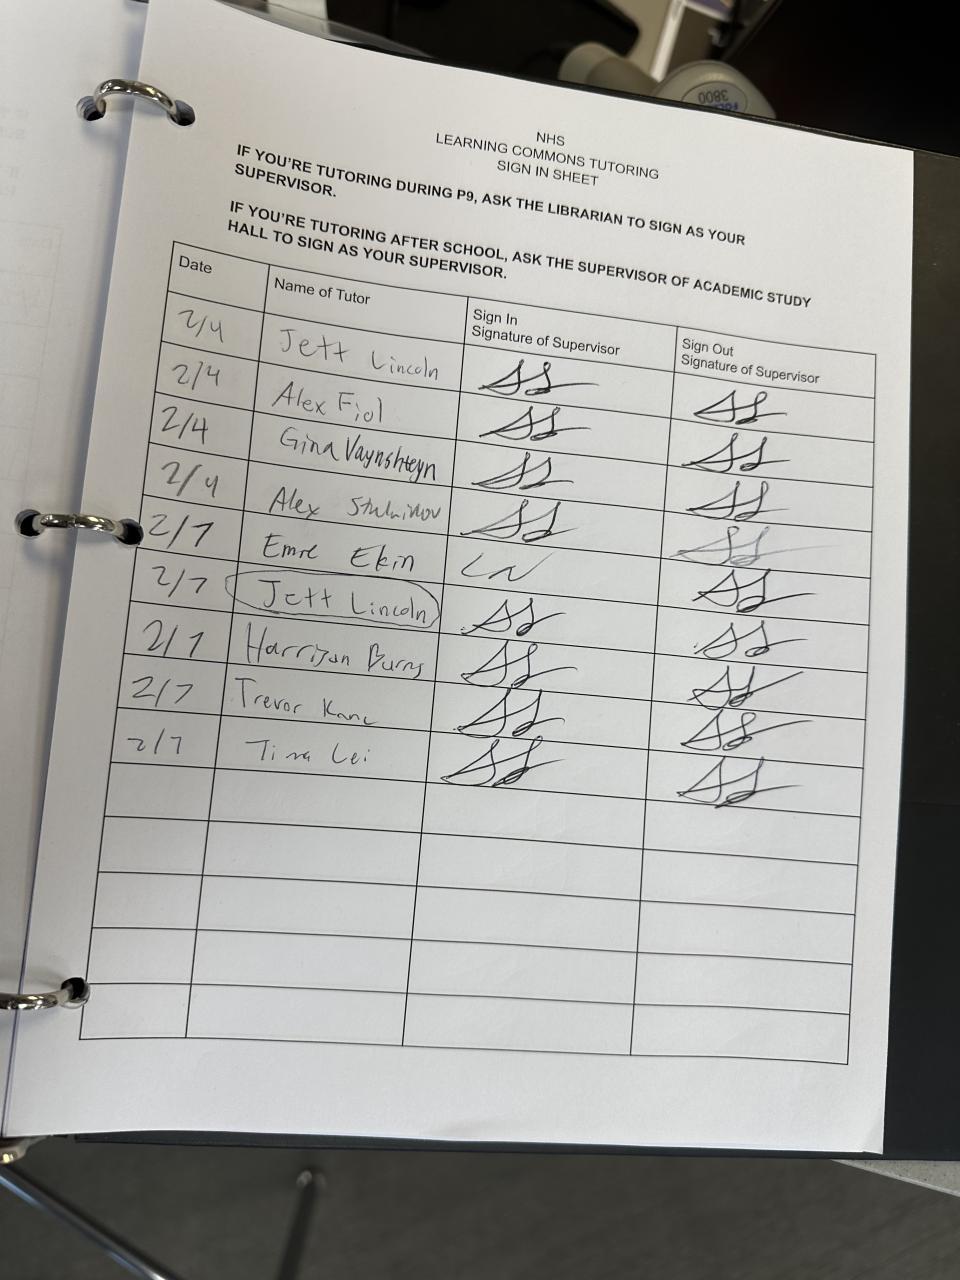 3800
NHS
LEARNING COMMONS TUTORING
SIGN IN SHEET
IF YOU'RE TUTORING DURING P9, ASK THE LIBRARIAN TO SIGN AS YOUR
SUPERVISOR.
IF YOU'RE TUTORING AFTER SCHOOL, ASK THE SUPERVISOR OF ACADEMIC STUDY
HALL TO SIGN AS YOUR SUPERVISOR.
Date Name of Tutor Sign In Signature of Supervisor Sign Out Signature of Supervisor
2/4 Jett Lincoln
2/4 Alex Fiol
2/4 Gina Vaynshteyn
2/4 Alex
2/7 Emre Ekin
2/7 Jett Lincoln
2/7 Harrison Burns
2/7 Trevor Kane
2/7 Tina Lei